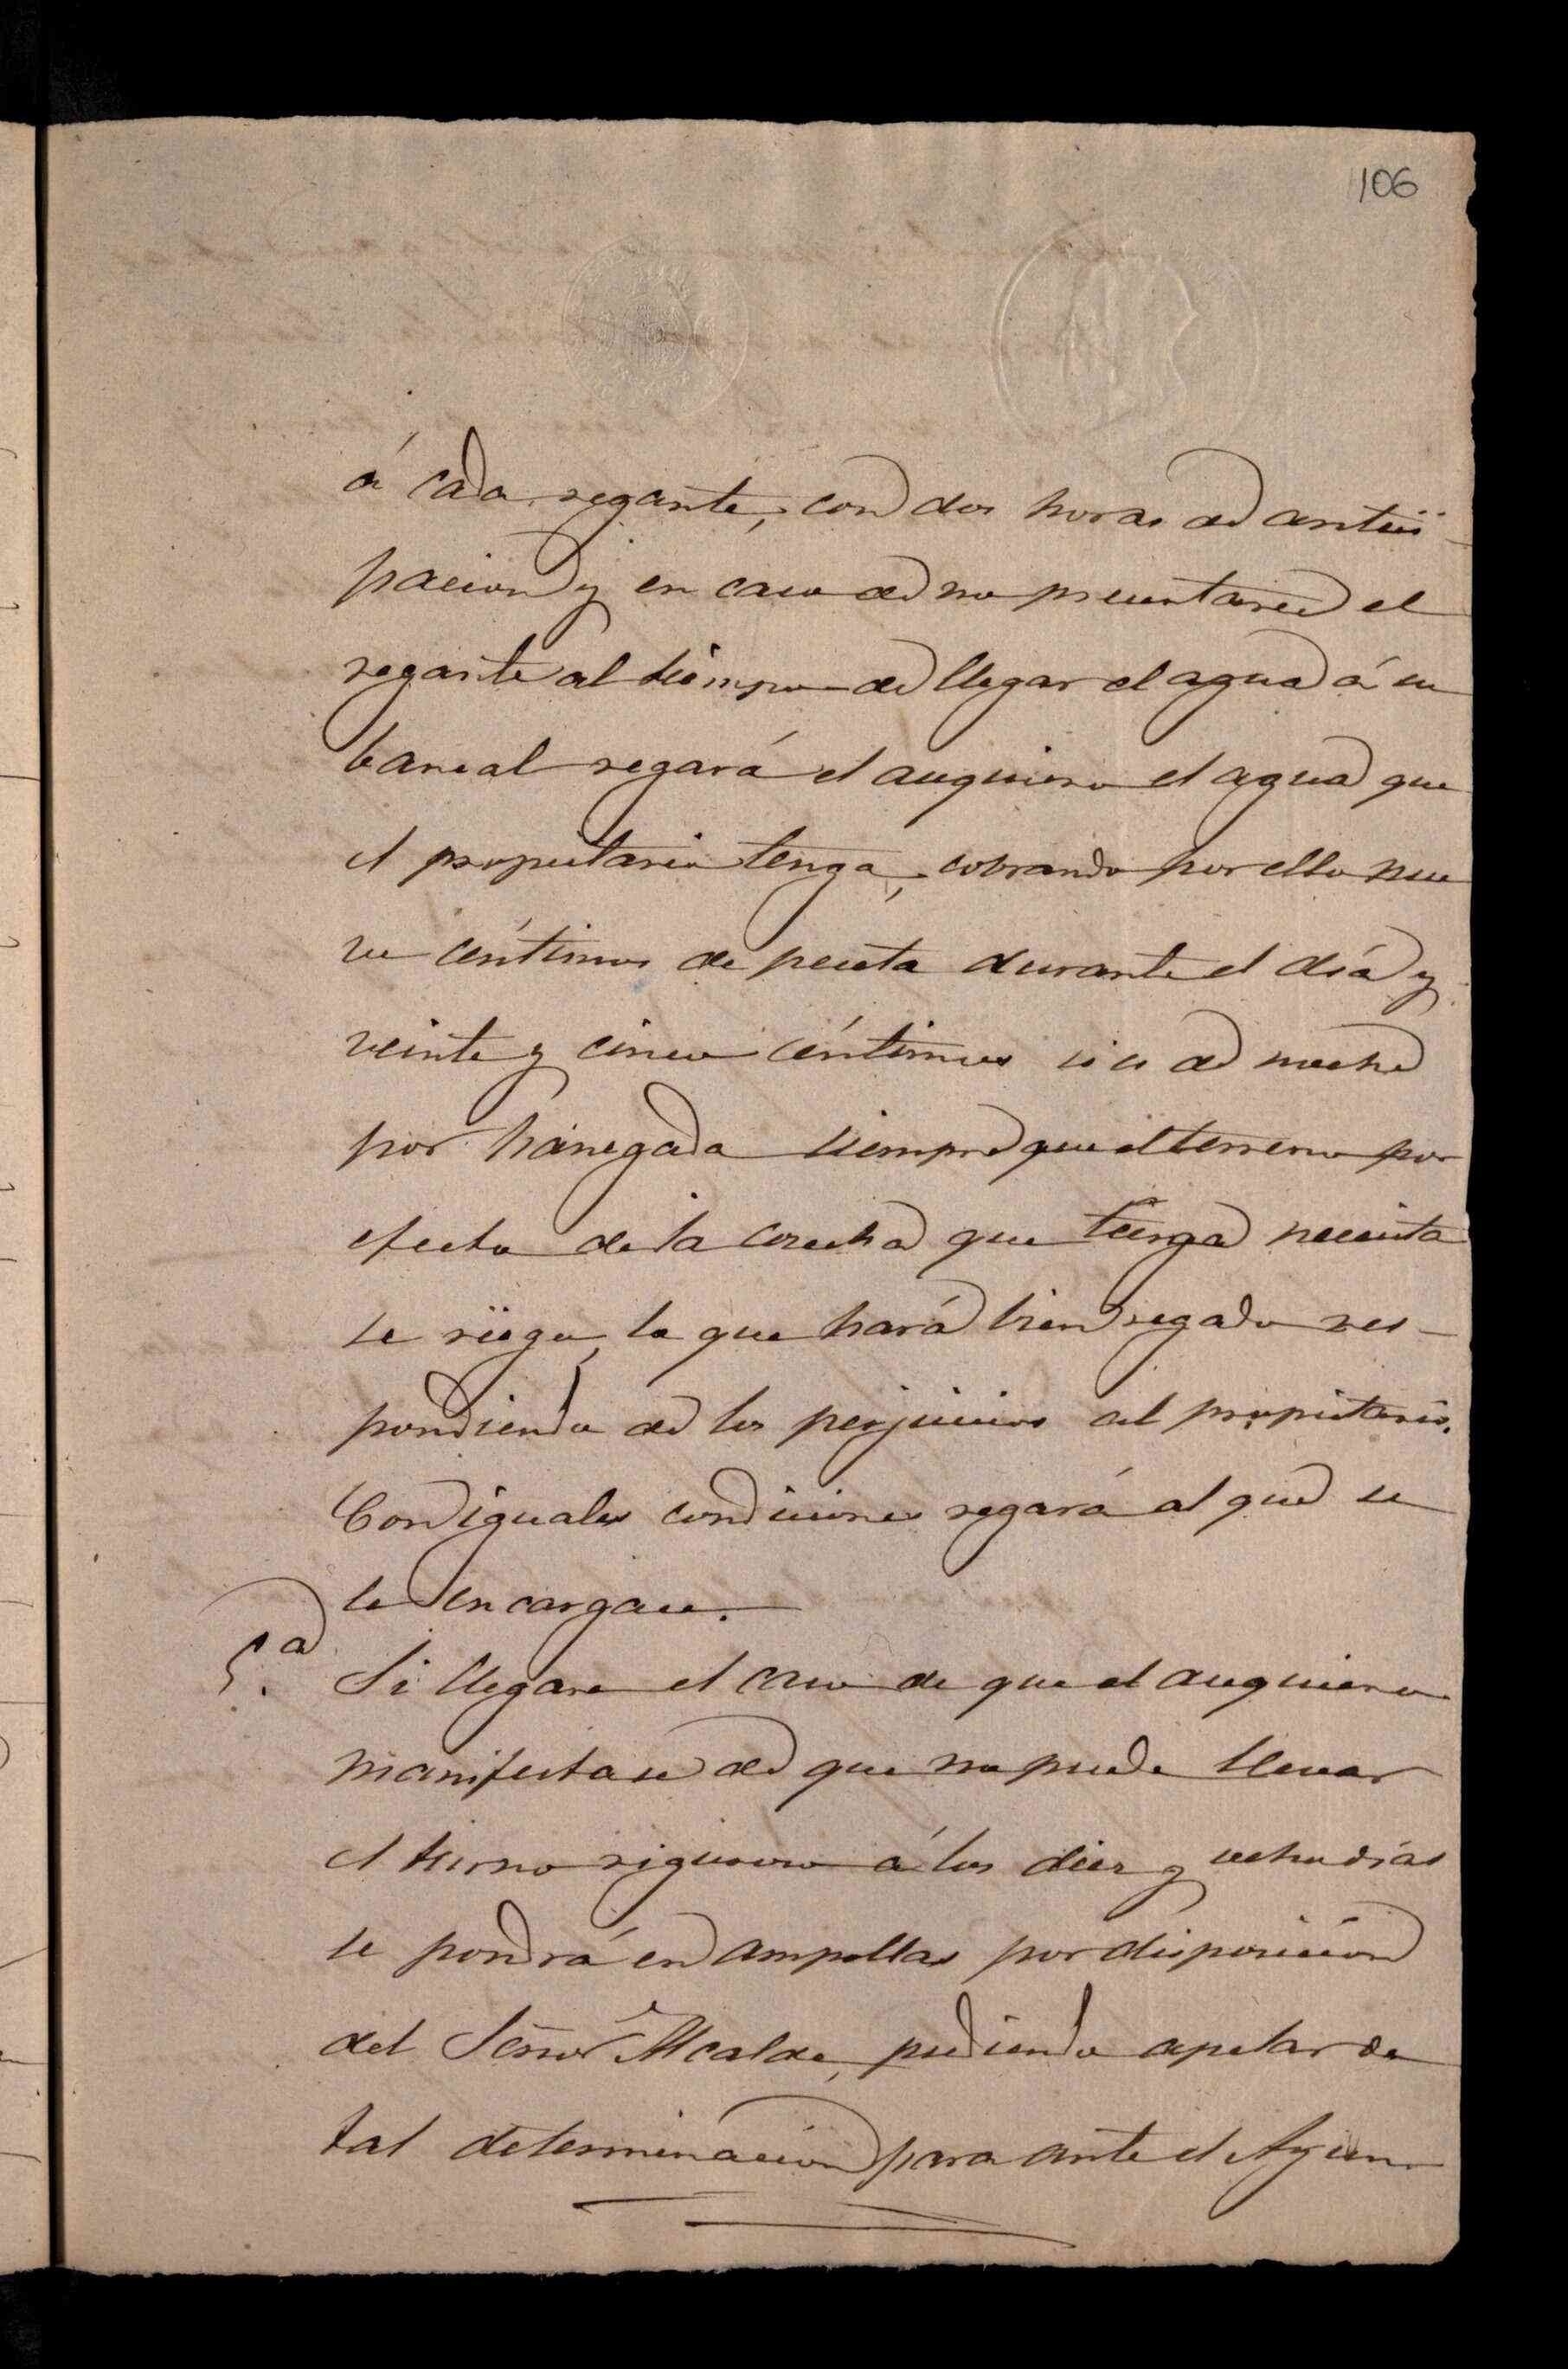 106
á cada regante, con dos horas de antici-
pacion y en caso de no presentarse el
regante al tiempo de llegar el agua á su
bancal regará el acequiero el agua que
el propietario tenga, cobrando por ello nue
ve céntimos de peseta durante el día y
veinte y cinco céntimos si es de noche
por hanegada siempre que el terreno por
efecto de la cosecha que tenga necesita
se riego, lo que hará bien regado res-
pondiendo de los perjuicios al propietario.
Con iguales condiciones regará al que se
le encargase.
5.a Si llegare el caso de que el acequiero
manifestase de que no puede llevar
el turno riguroso á los diez y ocho días
se pondrá en ampollas por disposición
del Señor Alcalde, pudiendo apelar de
tal determinacion para ante el Ayun-